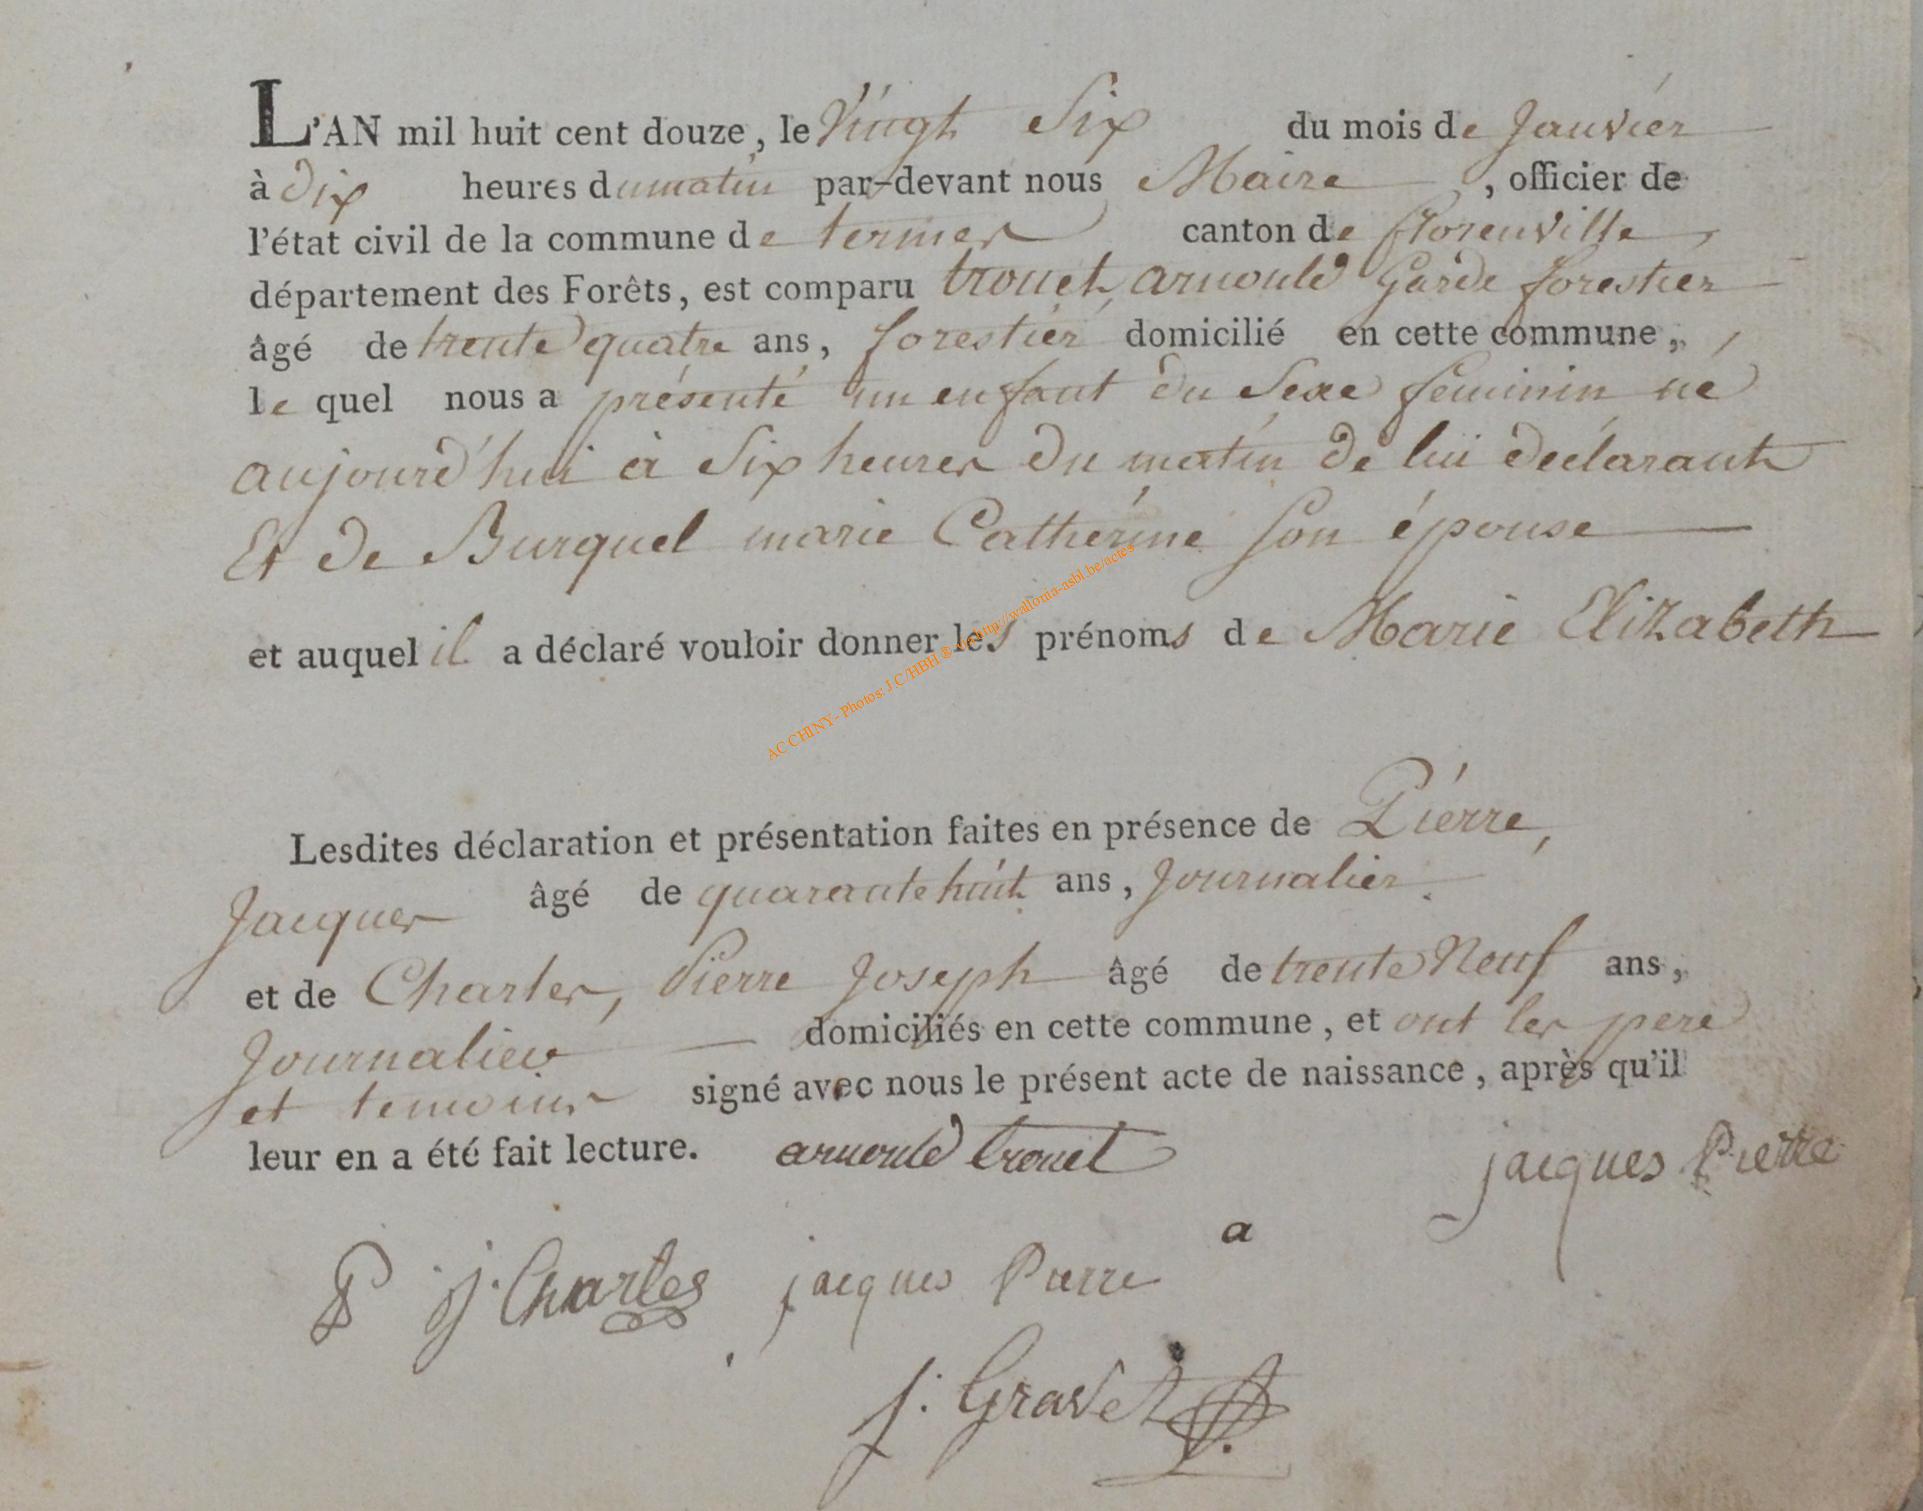 L'AN mil huit cent douze, le Vingt Six du mois de Janvier
à dix heures du matin par-devant nous Maire, officier de
l'état civil de la commune de termes canton de florenville,
département des Forêts, est comparu trouet, arnould Garde forestier
âgé de trente quatre ans, forestier domicilié en cette commune,,
le quel nous a présenté un enfant du Sexe féminin né
aujourd'hui à Six heures du matin de lui déclarant
Et de Burquel marie Catherine son épouse
et auquel il a déclaré vouloir donner les prénoms de Marie Elizabeth
AC CHINY- Photos: J.C/HBH ® http://wallonia-asbl.be/actes
Lesdites déclaration et présentation faites en présence de Pierre,
Jacques âgé de quarante huit ans, Journalier
et de Charles, Pierre Joseph âgé de trente Neuf ans,
Journalier domiciliés en cette commune, et ont les pere
et temoins signé avec nous le présent acte de naissance, après qu'il
leur en a été fait lecture. arnould trouet jacques Pierre
a
P j. Charles jacques Pierre
j. Gravet